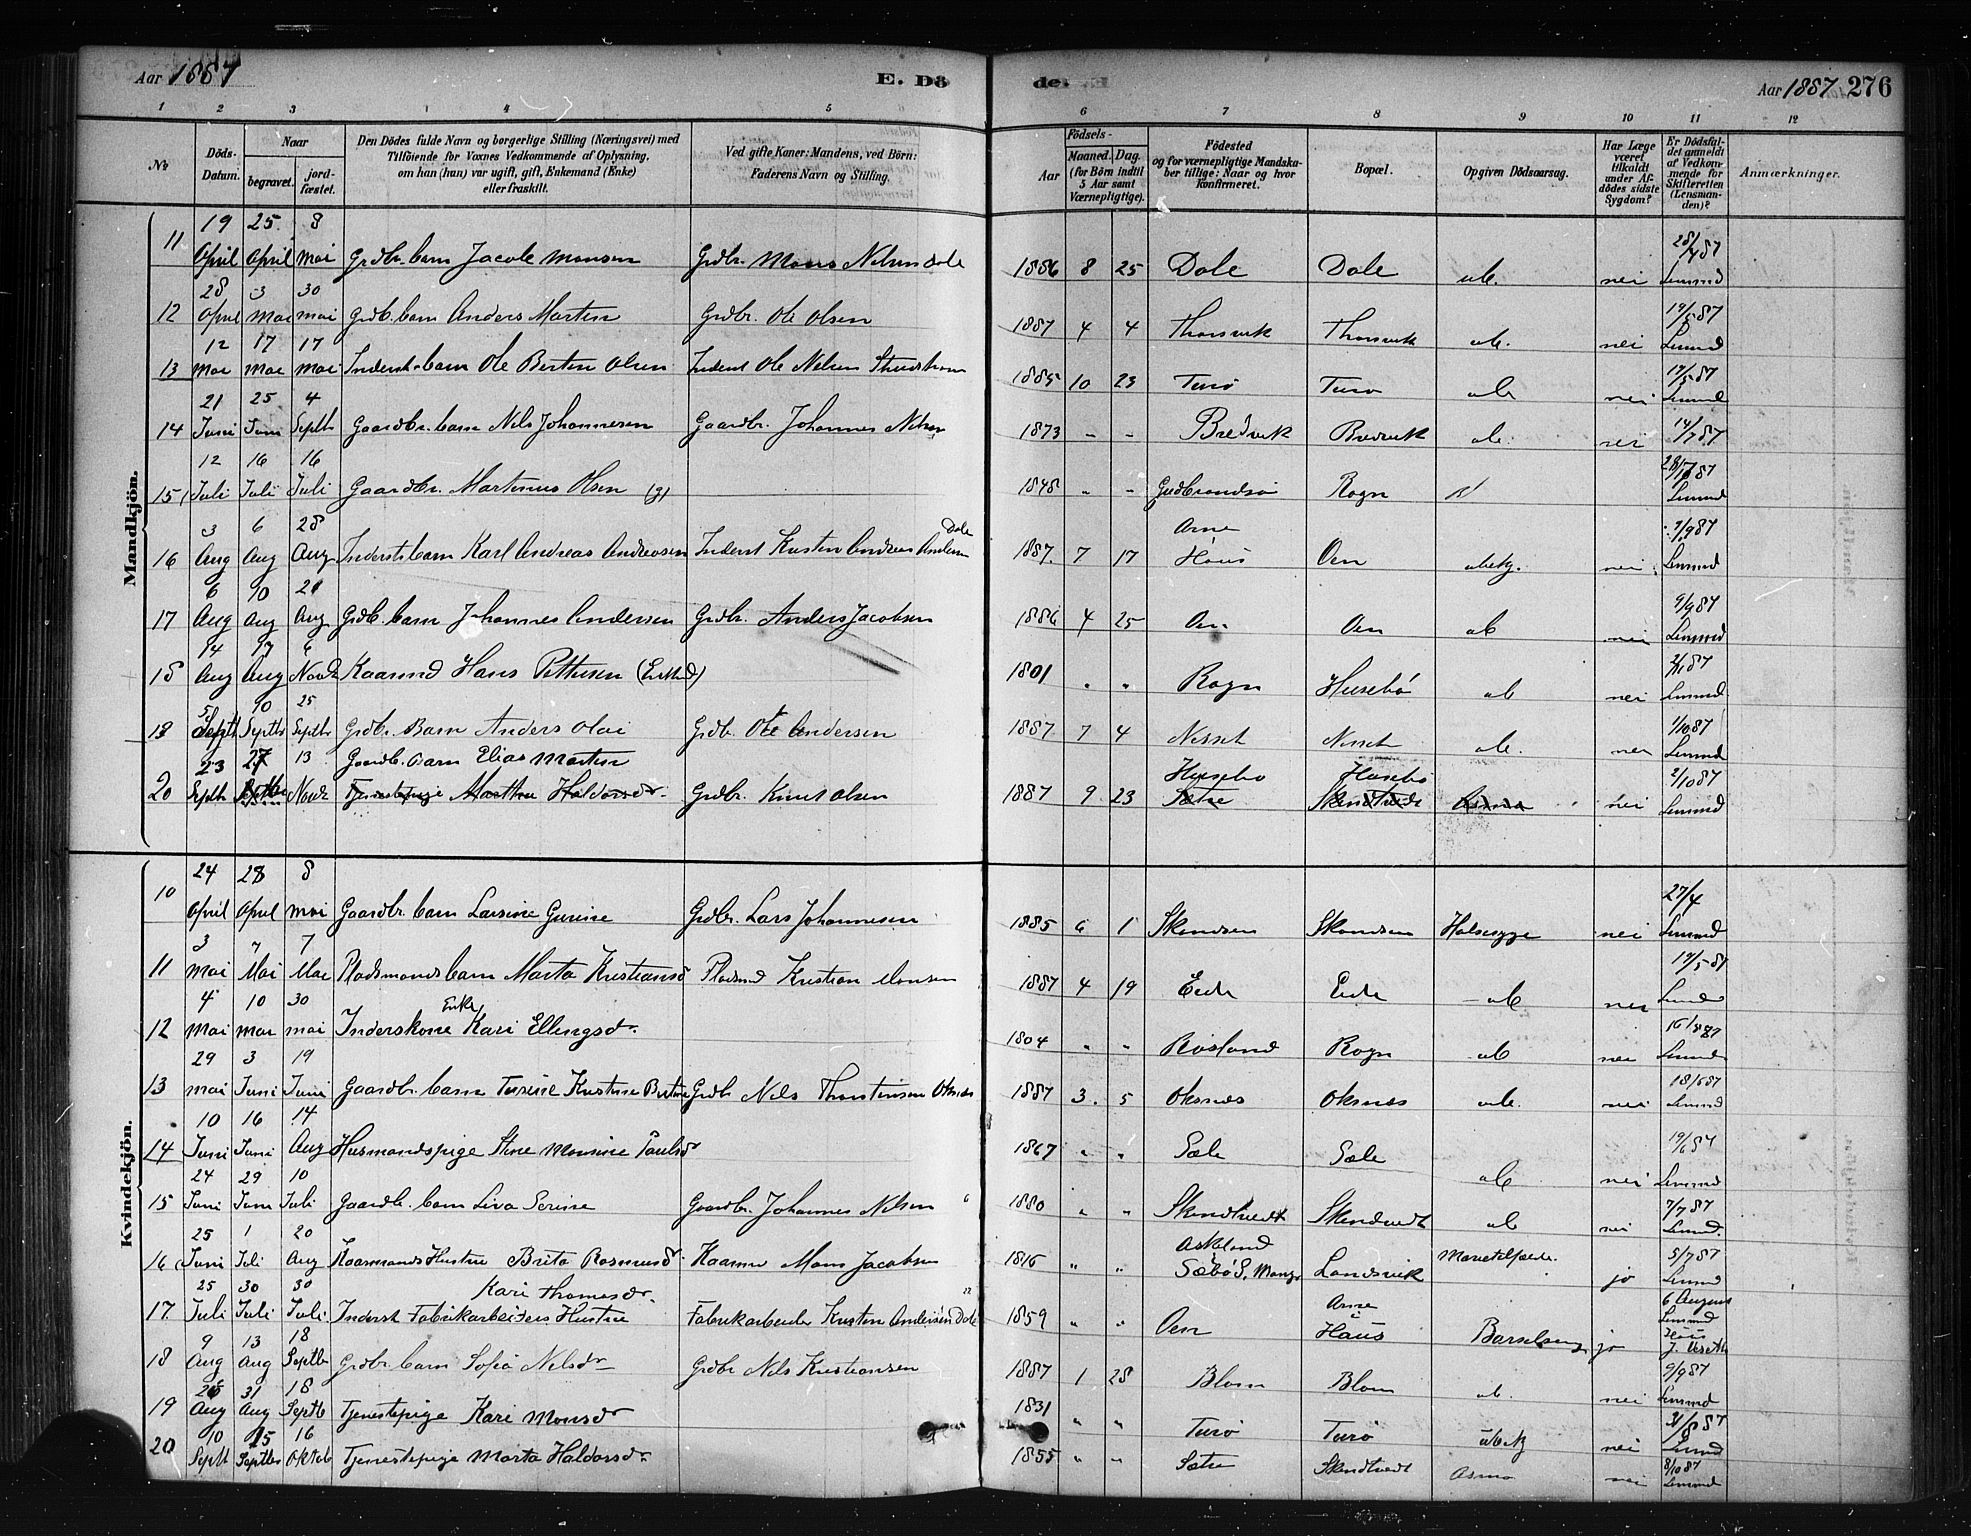 Aar 1887 E. Dö de. Aar 1887 276
1 2 3 4 5 6 7 8 9 10 11 12
No. Döds-Datum. Naar begravet. jord-fæstet. Den Dödes fulde Navn og borgerlige Stilling (Næringsvei) med Tilföiende for Voxnes Vedkommende af Oplysning, om han (hun) var ugift, gift, Enkemand (Enke) eller fraskilt. Ved gifte Koner: Mandens, ved Börn: Faderens Navn og Stilling. Födsels- Aar Maaned. Dag. (for Börn indtil 5 Aar samt Værnepligtige). Födested og for værnepligtige Mandskaber tillige: Naar og hvor konfirmeret. Bopæl. Opgiven Dödsaarsag. Har Læge været tilkaldt under Afdödes sidste Sygdom? Er Dödsfaldet anmeldt af Vedkommende for Skifteretten (Lensmanden)? Anmærkninger.
Mandkjön.
11 19 April 25 April 8 Mai Grdbr. barn Jacob Monsen Grdbr. Mons Nilsen Dole 1886 8 25 Dale Dale ub. nei 28/4 87 Lensmd
12 28 April 3 Mai 30 Mai Grdb. barn Anders Martin Grdbr. Ole Olsen 1887 4 4 Thorsvik Thorsvik ub. nei Lensmd
13 12 Mai 17 Mai 17 Mai Inderst. barn Ole Bertin Olsen Inderst Ole Nelsen 1885 10 23 Turö Turö ub nei 17/5 87 Lensmd
14 21 Juni 25 Juni 4 Septb Gaardbr. barn Nils Johannesen Gaardbr. Johannes Nelsen 1873 - - Bredvik Bredvik ub. nei 14/7 87
15 12 Juli 16 Juli 16 Juli Gaardbr. Martinus Olsen (g) 1848 " " Gudbrandsö Rogn Lensmd
16 3 Aug 6 Aug 28 Aug Inderstsbarn Karl Andreas Andreasen Inderst Kristen Andreas Andersen Dale 1887 7 17 Arne Haus Oen ubekj. nei 7/9 87 Lensmd
17 6 Aug 10 Aug 21 Aug Grdb. barn Johannes Andersen Grdbr. Anders Jacobsen 1886 4 25 Oen Oen ub nei 9/9 87 Lensmd
18 14 Aug 17 Aug 6 Novb Kaarmd Hans Pettersen (Enkemd) 1801 " " Rogn Husebö ub nei Lensmd
19 5 Septb 10 Septbr 25 Septb Grdbr. Barn Anders Olai Grdb. Ole Andersen 1887 7 4 Nesset Nesset ub. nei 1/10 87 Lensmd
20 23 Septb 27 Septbr 13 Novb Gaardb. barn Elias Martin Tjenestepige Martha Haldorsdr. Grdbr. Knut Olsen 1887 9 23 Husebö Sætre Husebö Skendtvedt Asma nei 2/10 87 Lensmd
Kvindekjön.
10 24 April 28 April 8 Mai Gaardbr. barn Larsine Gurine Grdbr. Lars Johannesen 1885 6 1 Skondsen Skondsen Halssyge nei 27/4 Lensmd
11 3 Mai 7 Mai 7 Mai Pladsmands barn Marta Kristiansd Pladsmd Kristian Monsen 1887 4 19 Eide Eide ub nei Lensmd
12 4 Mai 10 Mai 30 Mai Inderskone Enke Kari Ellingsdr. 1804 " " Rosland Rogn ub nei Lensmd
13 29 Mai 3 Juni 19 Juni Gaardbr. barn Turine Kristine Bertine Grdb Nils Thorstensen Oksnes 1887 3 5 Oksnes Oksnes ub. nei 18/6 87 Lensmd
14 10 Juni 16 Juni 14 Aug Husmandspige Stine Monsine Paulsdr 1867 " " Sæle Sæle ub nei 19/6 87 Lensmd
15 24 Juni 29 Juni 10 Juli Gaardb. barn Liva Serine Gaardbr. Johannes Nelsen 1880 " " Skendtvedt Skendtvedt ub nei 7/7 87 Lensmd.
16 25 Juni 1 Juli 20 Aug Kaarmands Hustru Brita Rasmusdr. Kaarmd Mons Jacobsen 1816 " " Askeland Sæbö S. Mangr Landsvik jo 5/7 87 Lensmd
17 25 Juli 30 Juli 30 Juli Kari Thomasdr. Inderst Fabrikarbeiders Hustru Fabrikarbeider Kristen Andersen Dale 1859 " " Oen Arne i Haus Barselseng jo 6 August Lensmd Haus
18 9 Aug 13 Aug 18 Septb Grdbr. barn Sofia Nelsdr Grdbr Nils Kristiansen 1887 1 28 Blom Blom ub. nei 9/9 87 Lensmd
19 26 Aug 31 Aug 18 Septb Tjenestepige Kari Monsdr 1831 " " Turö Turö ubekj nei Lensmd
20 10 Septb 15 Septbr 16 Oktob Tjenestepige Marta Haldorsdr 1855 " " Sætre Skendtvedt Asma nei 8/10 87 Lensmd